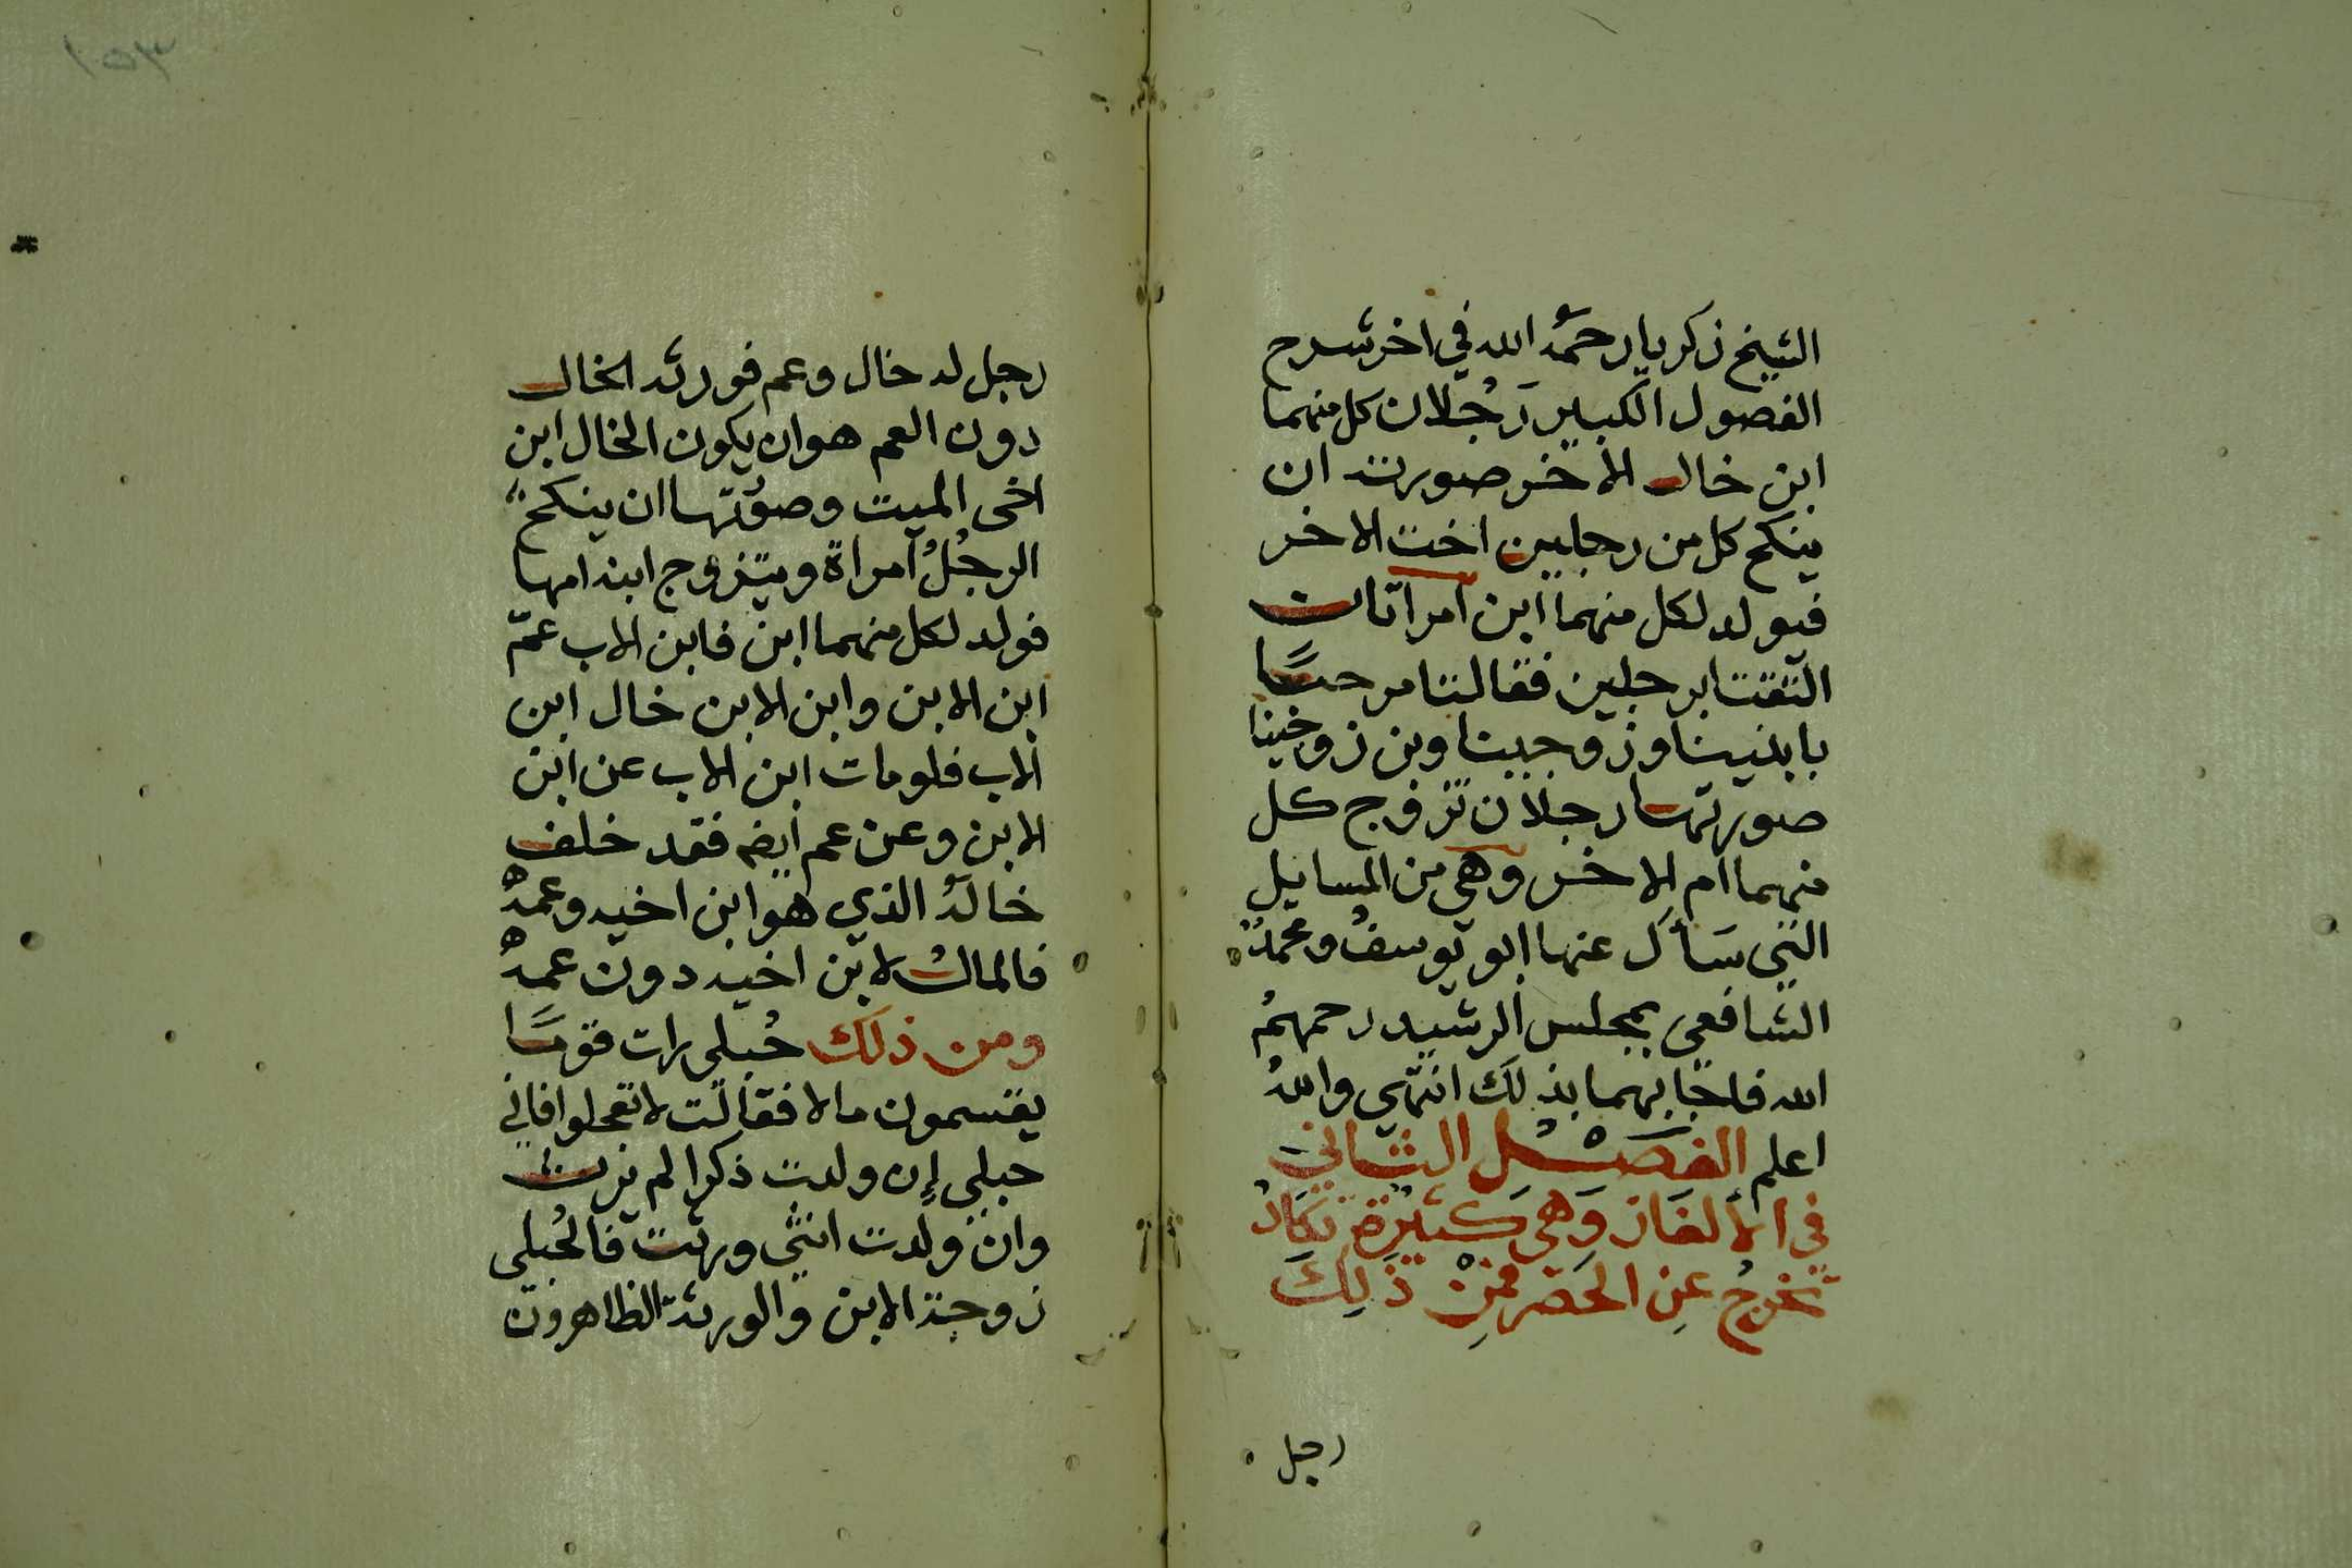 الشيخ زكريا رحمه الله في اخر شرح
الفصول الكبير رَجُلان كل منهما
ابن خال الاخر صورته ان
ينكح كل من رجلين اخت الاخر
فيولد لكل منهما ابن امراتان
التقتا برجلين فقالتا مرحبًا
بابنينا وزوجينا وبن زوجينا
صورتها رجلان تزوج كل
منهما ام الاخر وهي من المسايل
التي سَأل عنها ابو يوسف ومحمدٌ
الشافعي بمجلس الرشيد رحمهمُ
الله فاجابهما بذلك انتهي واللهُ
اعلم الفصْل الثاني
في الألغَاز وَهي كثيرة تكادُ
تخرجُ عنِ الحَصْر فمِنْ ذَلِكَ
رجل
١٥٣
رجل له خال وعم فورثه الخال
دون العم هو ان يكون الخال ابن
اخى الميت وصورتها ان ينكح
الرجُلُ امراة ويتزوج ابنه امها
فولد لكل منهما ابن فابن الاب عمّ
ابن الابن وابن الابن خال ابن
الاب فلو مات ابن الاب عن ابن
الابن وعن عم ايضه فقد خلف
خالهُ الذي هو ابن اخيه وعمهُ
فالمالُ لابن اخيه دون عمهُ
ومن ذلكَ حُبلى رات قومًا
يقتسمون مالا فقالت لا تعجلوا فاني
حبلي إن ولدت ذكرا لم يرث
وان ولدت انثى ورثت فالحُبلى
زوجة الابن والورثة الظاهرون